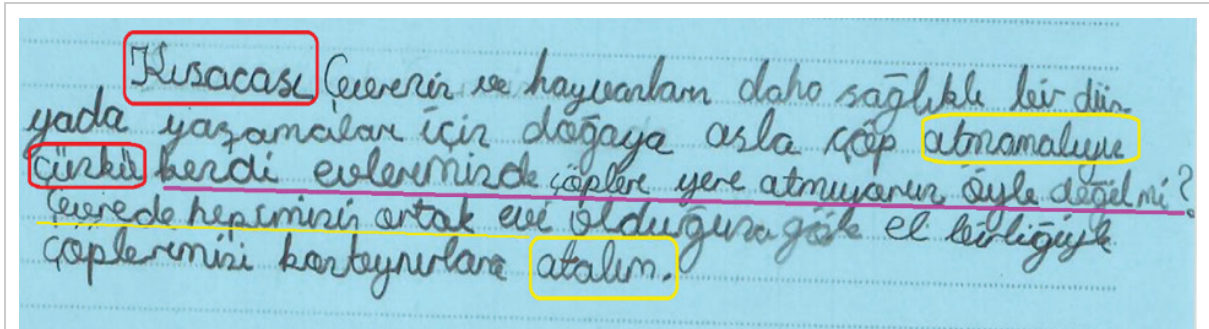 Kısacası Çevrenin ve hayvanların daha sağlıklı bir dün
yada yaşamaları için doğaya asla çöp atmamalıyız
çünkü kendi evlerimizde çöpleri yere atmıyoruz öyle değil mi?
Çevrede hepimizin ortak evi olduğuna göre el birliğiyle
çöplerimizi konteynırlara atalım.